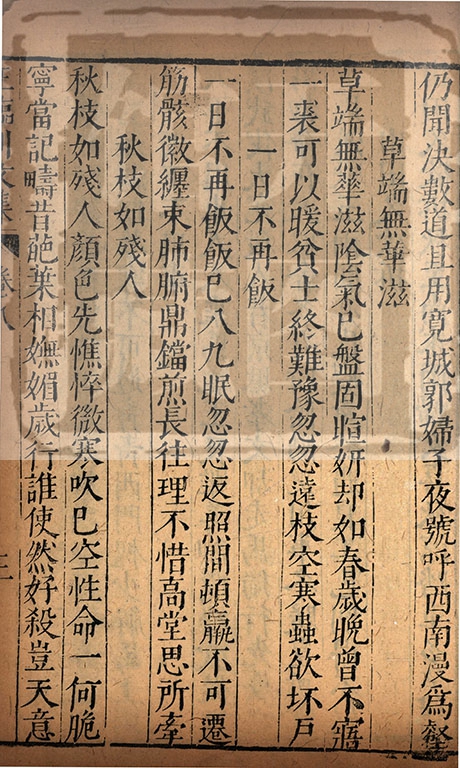 仍聞決數道且用寬城郭婦子夜號呼西南漫為壑
草端無華滋
草端無華滋陰氣已盤固暄妍却如春歲晚曾不寤
一裘可以暖貧士終難豫忽忽遠枝空寒蟲欲坏戶
一日不再飯
一日不再飯飯已八九眠忽忽返照間頓羸不可遷
筋骸徽纏束肺腑鼎鐺煎長往理不惜高堂思所牽
秋枝如殘人
秋枝如殘人顏色先憔悴微寒吹已空性命一何脆
寧當記疇昔葩葉相嫵媚歲行誰使然好殺豈天意
卷八